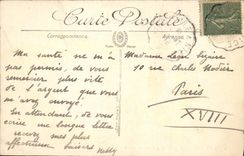 Carte Postale
Correspondance
Adresse
Ma santé ne m'a
pas permis, de vous
remercier plus vite
de l'argent que vous
m'avez envoyé.
En attendant, de vous
écrire une longue lettre
recevez mes plus
affectueux baisers
Madame
10 rue Charles Nodier
Paris
XVIII